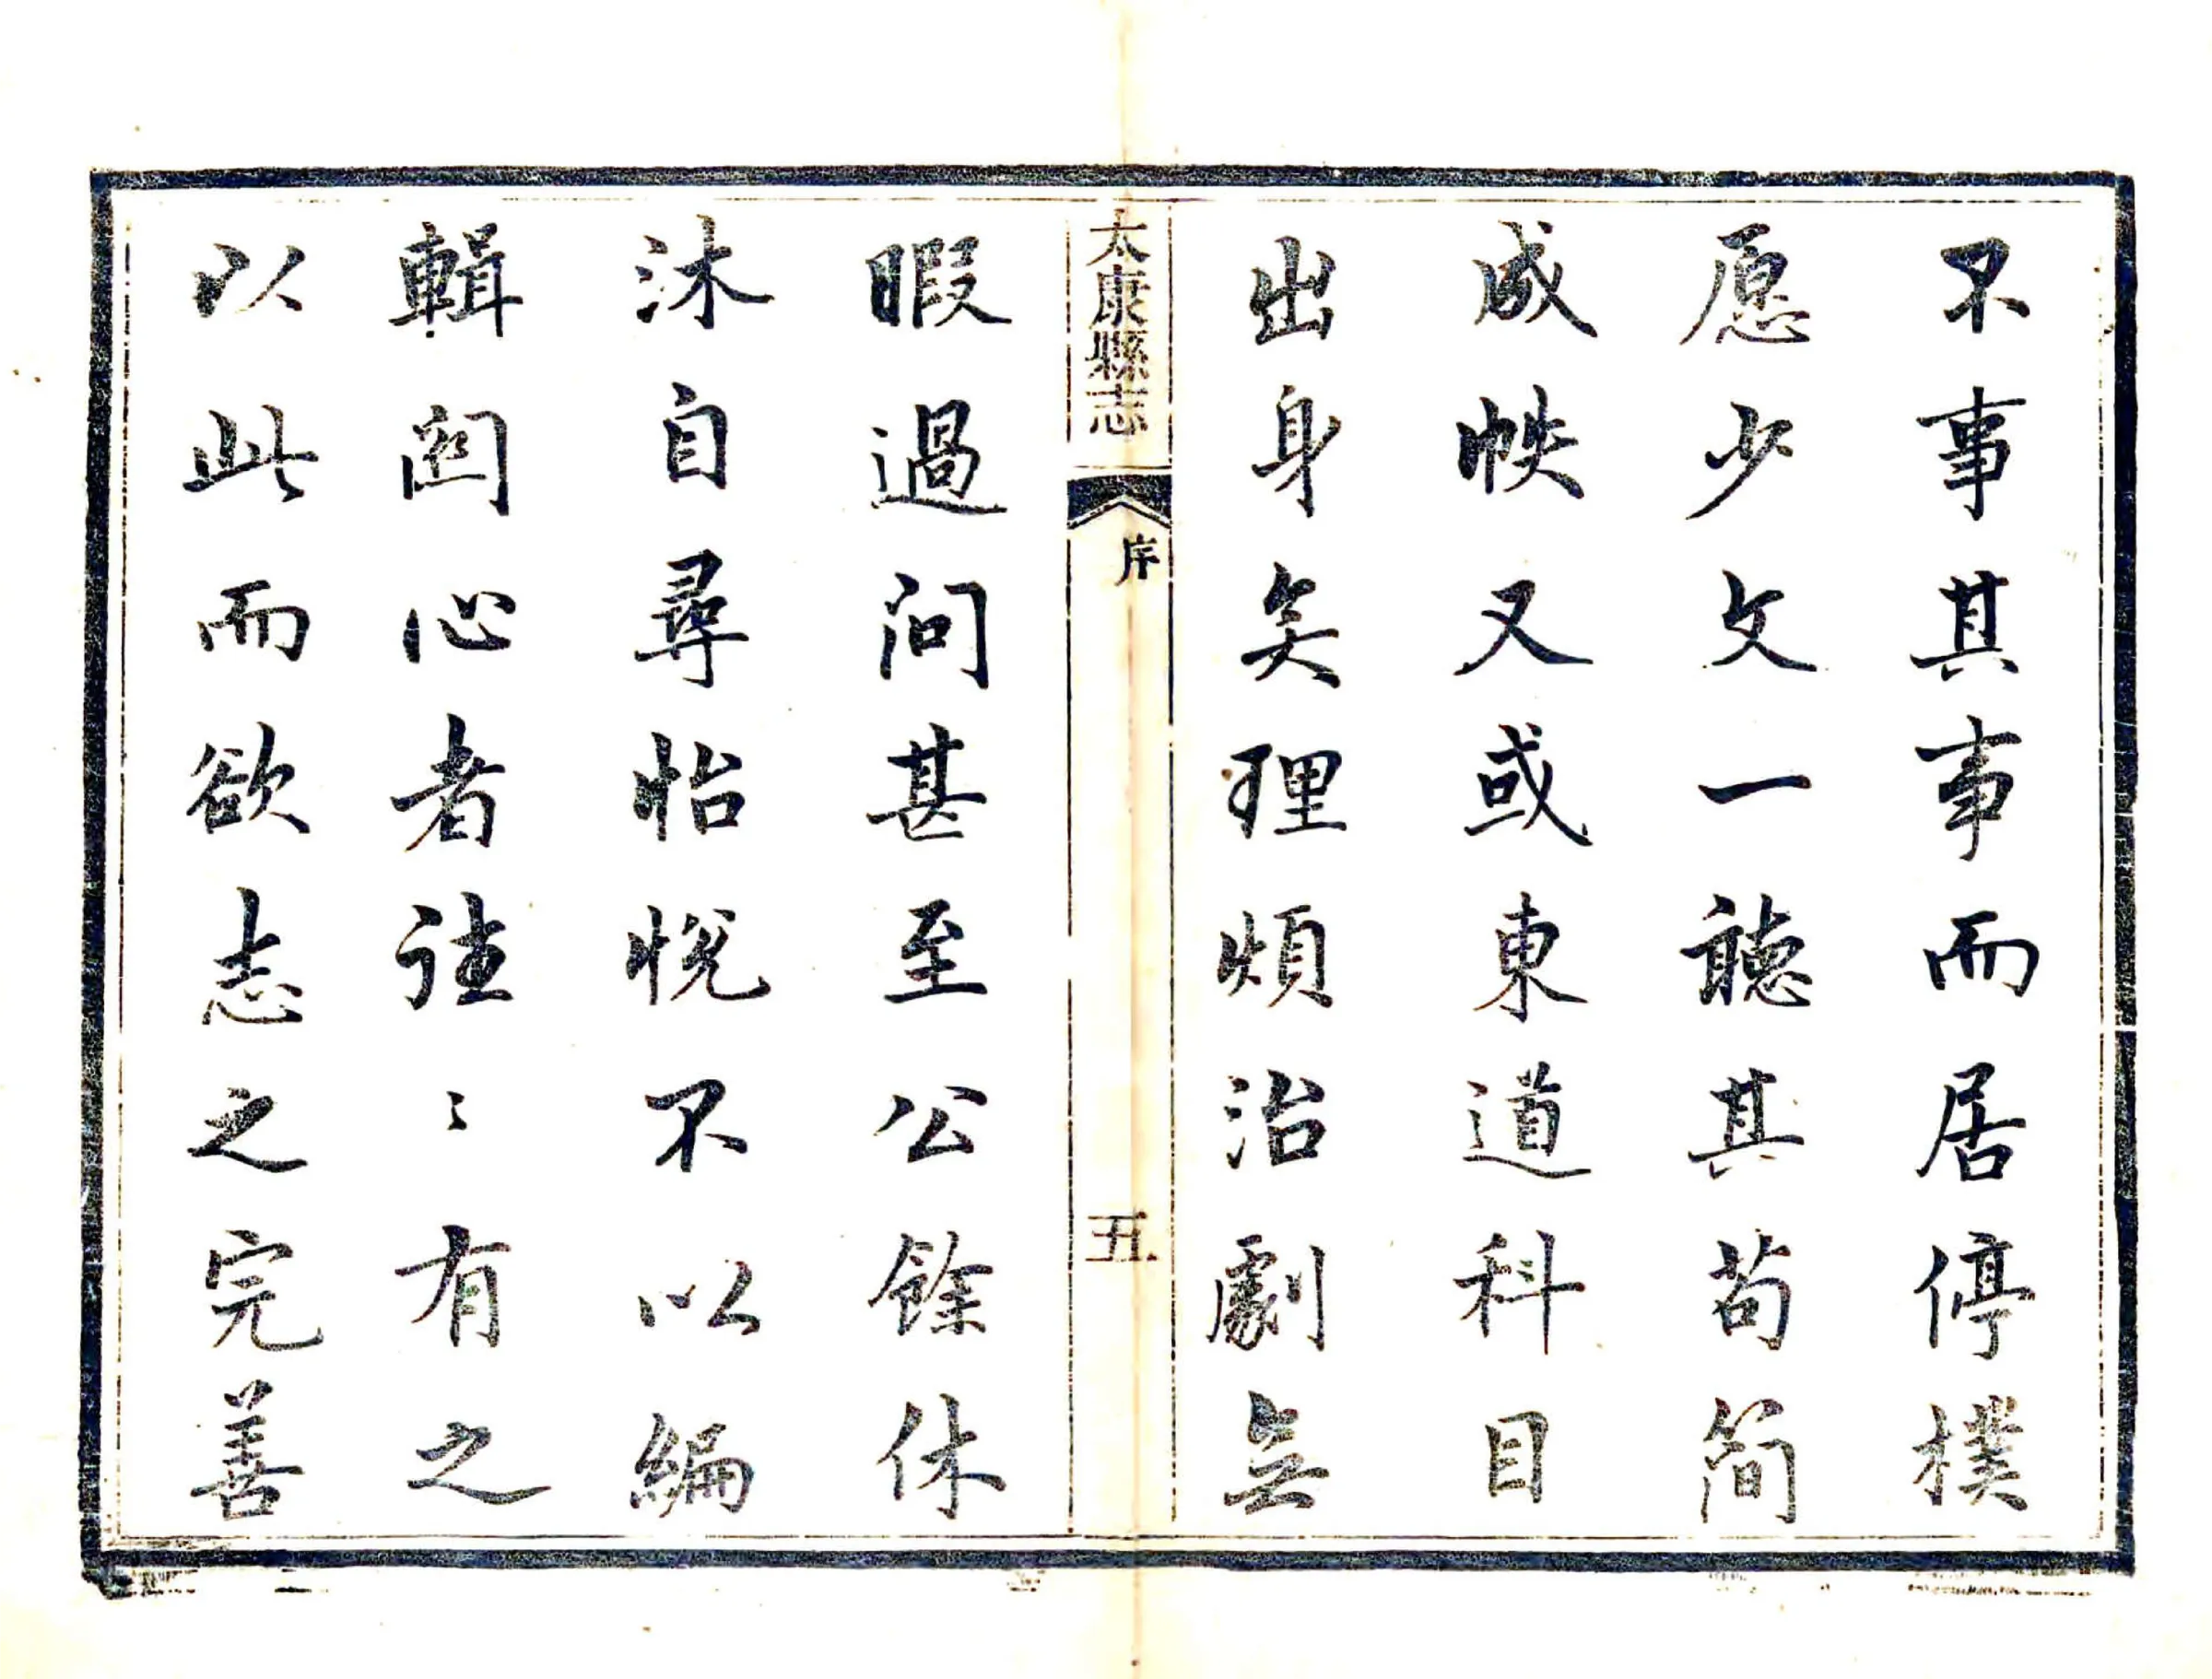 不事其事而居停樸
愿少文一聽其苟簡
成帙又或東道科目
出身矣理煩治劇無
太康縣志
序
五
暇過問甚至公餘休
沐自尋怡悅不以編
輯關心者往〻有之
以此而欲志之完善